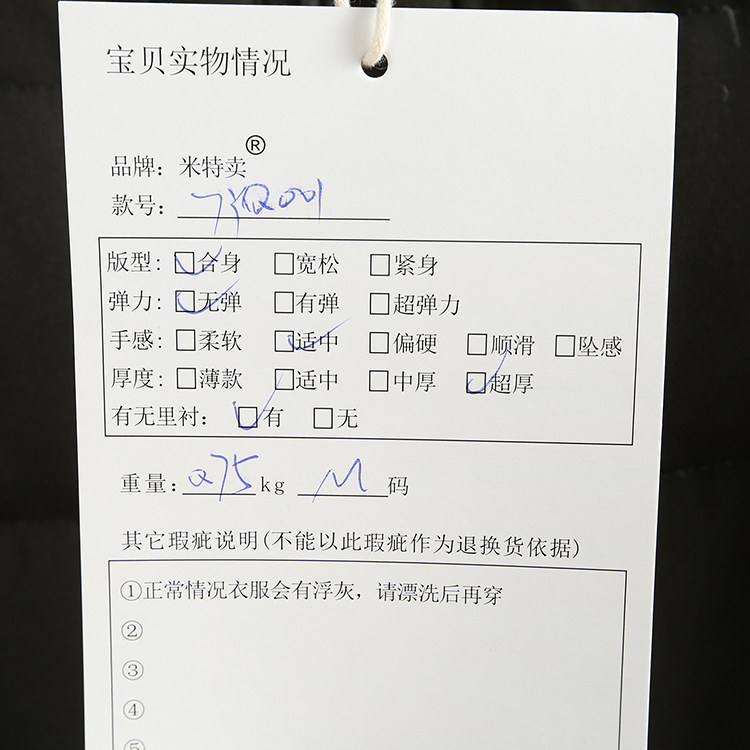 宝贝实物情况
品牌：米特卖®
款号：
版型：☑合身 □宽松 □紧身
弹力：☑无弹 □有弹 □超弹力
手感：□柔软 ☑适中 □偏硬 □顺滑 □坠感
厚度：□薄款 □适中 □中厚 ☑超厚
有无里衬：☑有 □无
重量：0.75kg M码
其它瑕疵说明(不能以此瑕疵作为退换货依据)
①正常情况衣服会有浮灰，请漂洗后再穿
②
③
④
⑤